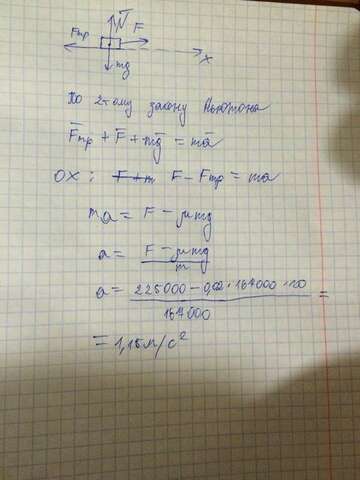 N̅
Fтр F
mg x
По 2тому закону Ньютона
F̅тр + F̅ + mg̅ = ma̅
OX: F - Fтр = ma
ma = F - μmg
a = F - μmg / m
a = 225000 - 0,02 · 164000 · 10 / 164000 =
= 1,15м/с²